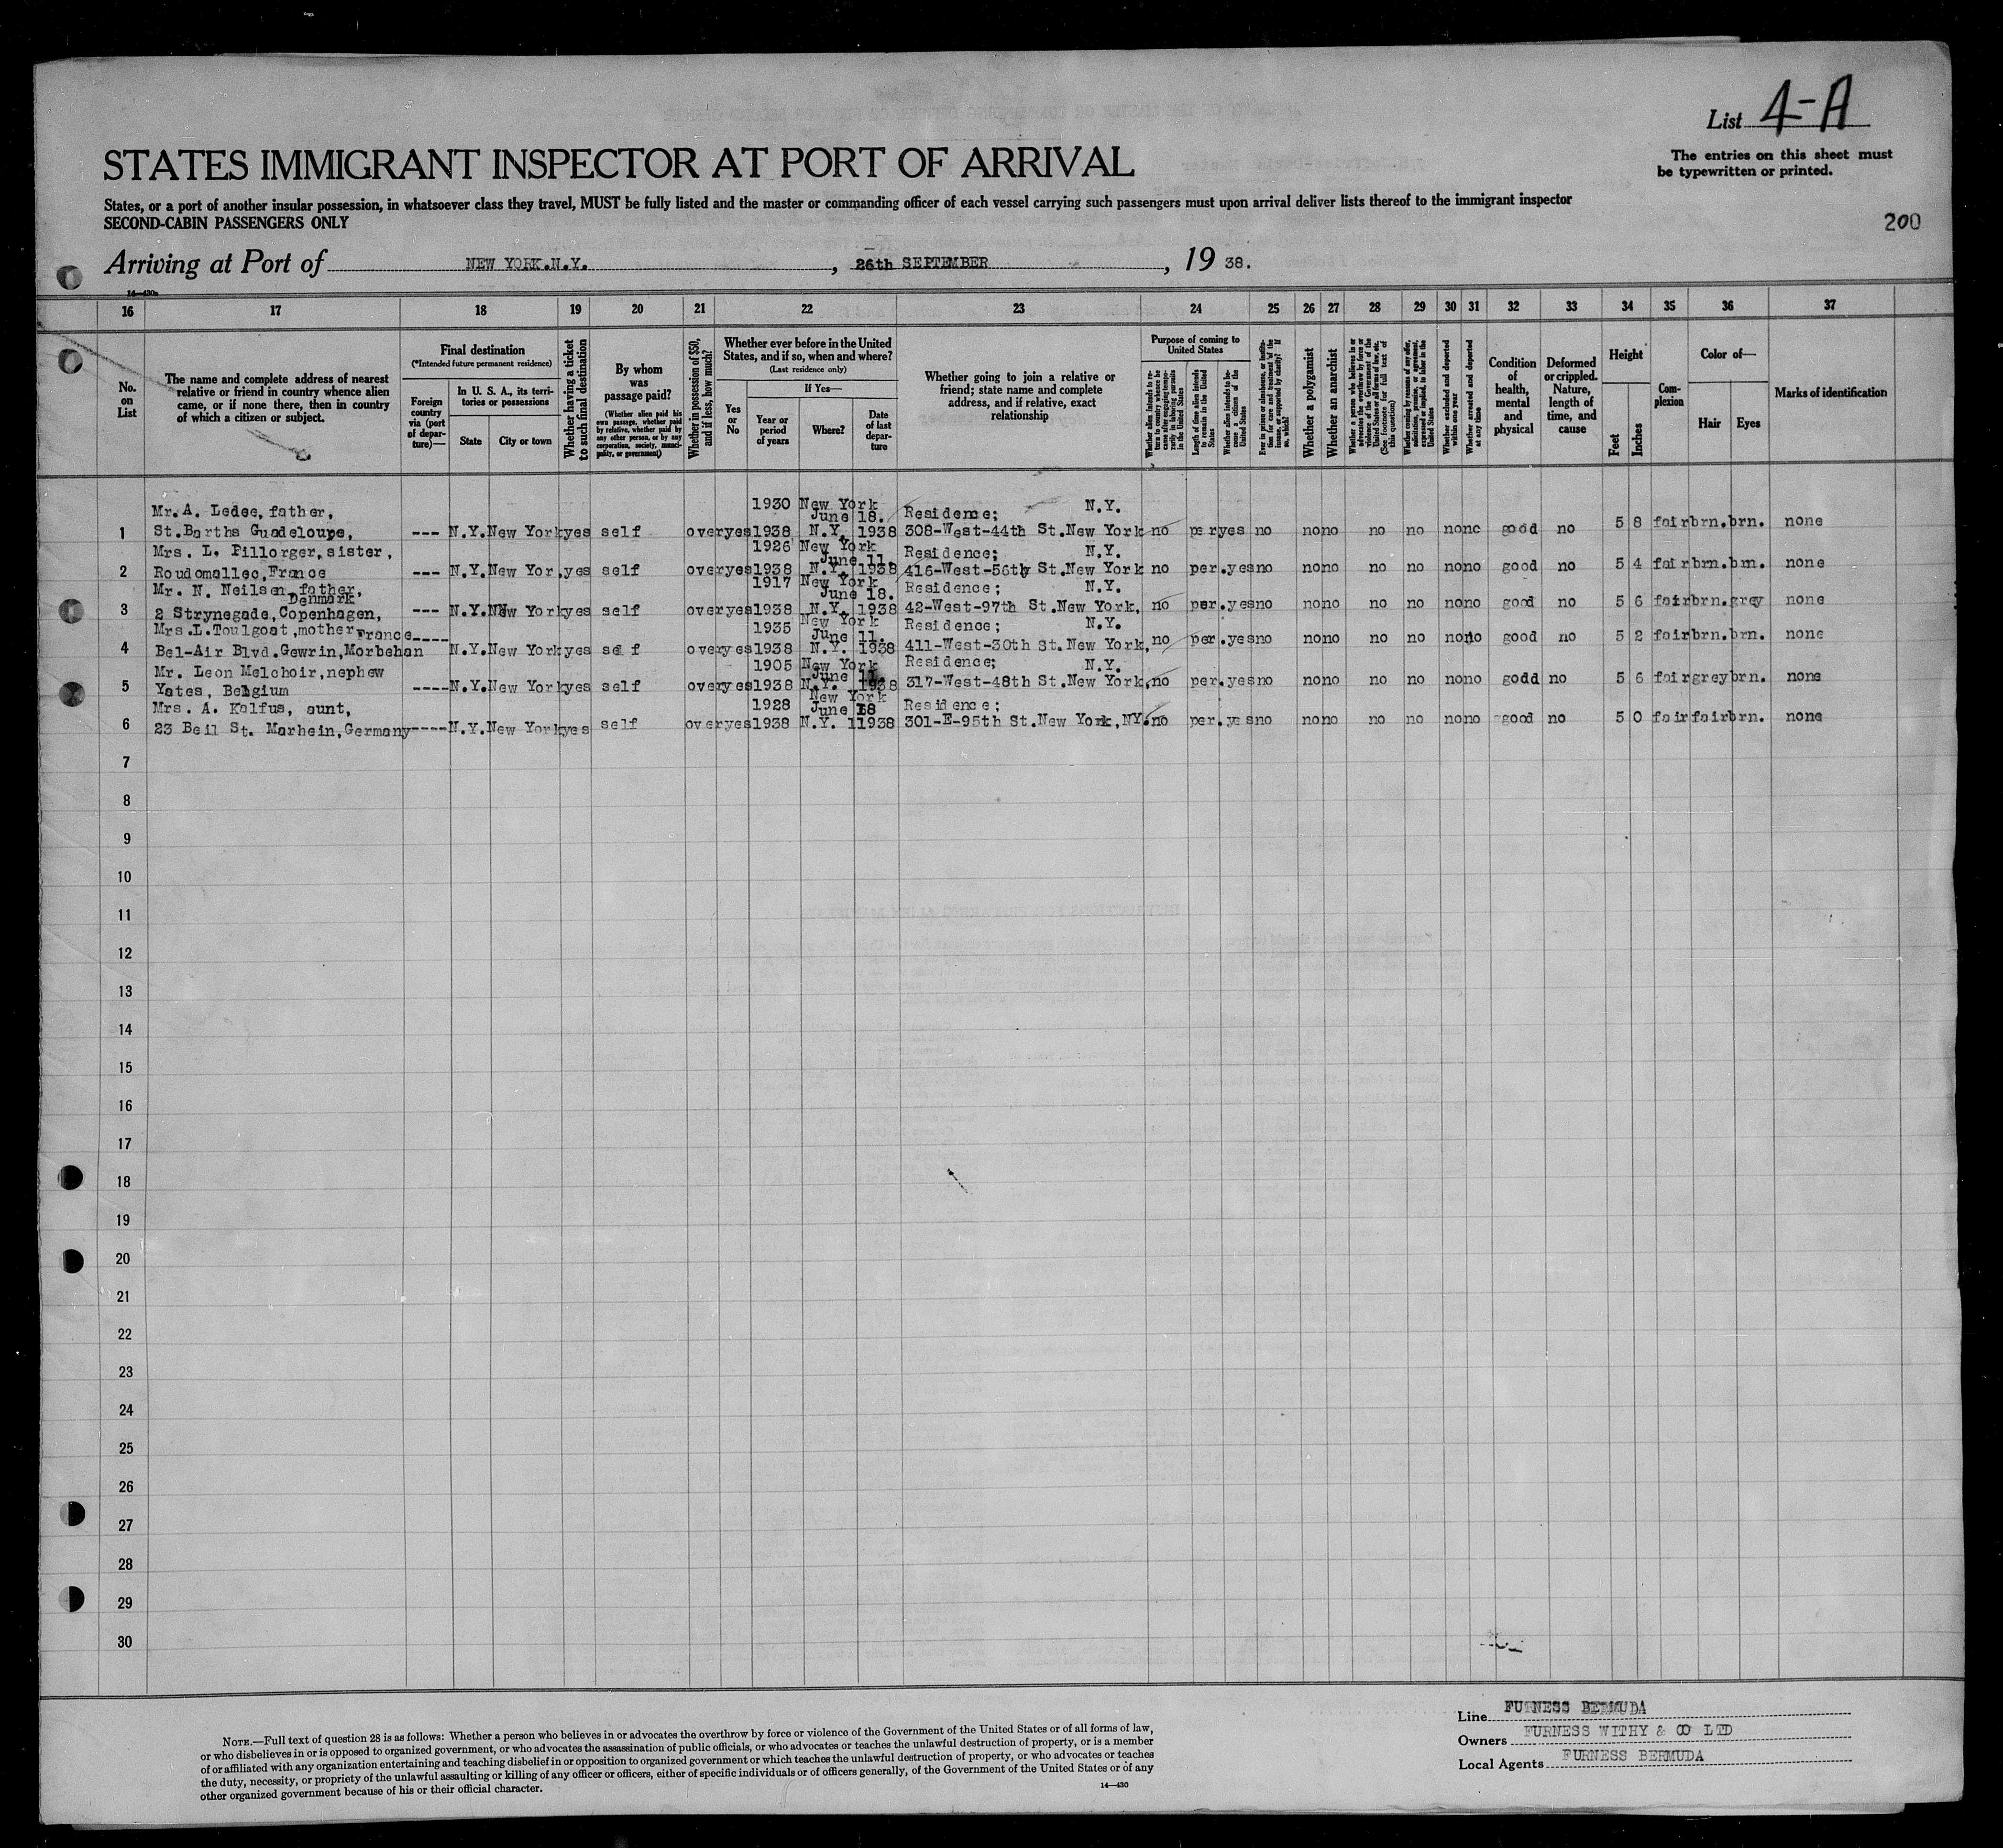 List 4-A
The entries on this sheet must
be typewritten or printed.
STATES IMMIGRANT INSPECTOR AT PORT OF ARRIVAL
States, or a port of another insular possession, in whatsoever class they travel, MUST be fully listed and the master or commanding officer of each vessel carrying such passengers must upon arrival deliver lists thereof to the immigrant inspector
SECOND-CABIN PASSENGERS ONLY
200
Arriving at Port of NEW YORK.N.Y. , 26th SEPTEMBER , 19 38.
14-430a
16 17 18 19 20 21 22 23 24 25 26 27 28 29 30 31 32 33 34 35 36 37
No. on List
The name and complete address of nearest
relative or friend in country whence alien
came, or if none there, then in country
of which a citizen or subject.
Final destination
(*Intended future permanent residence)
Foreign country via (port of departure)—
In U. S. A., its territories or possessions
State
City or town
Whether having a ticket to such final destination
By whom was passage paid?
(Whether alien paid his own passage, whether paid by relative, whether paid by any other person, or by any corporation, society, municipality, or government)
Whether in possession of $50, and if less, how much?
Whether ever before in the United States, and if so, when and where?
(Last residence only)
Yes or No
If Yes—
Year or period of years
Where?
Date of last departure
Whether going to join a relative or
friend; state name and complete
address, and if relative, exact
relationship
Purpose of coming to United States
Whether alien intends to return to country whence he came after engaging temporarily in laboring pursuits in the United States
Length of time alien intends to remain in the United States
Whether alien intends to become a citizen of the United States
Ever in prison or almshouse, or institution for care and treatment of the insane, or supported by charity? If so, which?
Whether a polygamist
Whether an anarchist
Whether a person who believes in or advocates the overthrow by force or violence of the Government of the United States or all forms of law, etc. (See footnote for full text of this question)
Whether coming by reason of any offer, solicitation, promise, or agreement, expressed or implied, to labor in the United States
Whether excluded and deported within one year
Whether arrested and deported at any time
Condition of health, mental and physical
Deformed or crippled. Nature, length of time, and cause
Height
Feet
Inches
Complexion
Color of—
Hair
Eyes
Marks of identification
Mr. A. Ledee, father, 1930 New York June 18. Residence; N.Y.
1 St.Barths Guadeloupe, --- N.Y. New York yes self over yes 1938 N.Y. 1938 308-West-44th St.New York no per yes no no no no no no no good no 5 8 fair brn. brn. none
Mrs. L. Pillorger, sister, 1926 New York June 11 Residence; N.Y.
2 Roudomallec, France --- N.Y. New Yor, yes self over yes 1938 N.Y. 1938 416-West-56th St.New York no per. yes no no no no no no no good no 5 4 fair brn. brn. none
Mr. N. Neilsen, father, Denmark 1917 New York June 18. Residence; N.Y.
3 2 Strynegade, Copenhagen, --- N.Y. New York yes self over yes 1938 N.Y. 1938 42-West-97th St.New York, no per. yes no no no no no no no good no 5 6 fair brn. grey none
Mrs.L.Toulgoat, mother, France 1935 New York June 11. Residence; N.Y.
4 Bel-Air Blvd.Gewrin, Morbehan ---- N.Y. New York yes self over yes 1938 N.Y. 1938 411-West-30th St.New York, no per. yes no no no no no no no good no 5 2 fair brn. brn. none
Mr. Leon Melchoir, nephew 1905 New York June Residence; N.Y.
5 Yates, Belgium ---- N.Y. New York yes self over yes 1938 N.Y. 1938 317-West-48th St.New York, no per. yes no no no no no no no godd no 5 6 fair grey brn. none
Mrs. A. Kalfus, aunt, 1928 New York June 18 Residence;
6 23 Beil St. Marhein, Germany ---- N.Y. New York yes self over yes 1938 N.Y. 1938 301-E-95th St.New York, NY. no per. yes no no no no no no no good no 5 0 fair fair brn. none
7
8
9
10
11
12
13
14
15
16
17
18
19
20
21
22
23
24
25
26
27
28
29
30
NOTE.—Full text of question 28 is as follows: Whether a person who believes in or advocates the overthrow by force or violence of the Government of the United States or of all forms of law,
or who disbelieves in or is opposed to organized government, or who advocates the assassination of public officials, or who advocates or teaches the unlawful destruction of property, or is a member
of or affiliated with any organization entertaining and teaching disbelief in or opposition to organized government or which teaches the unlawful destruction of property, or who advocates or teaches
the duty, necessity, or propriety of the unlawful assaulting or killing of any officer or officers, either of specific individuals or of officers generally, of the Government of the United States or of any
other organized government because of his or their official character.
14—430
Line FURNESS BERMUDA
Owners FURNESS WITHY & CO LTD
Local Agents FURNESS BERMUDA